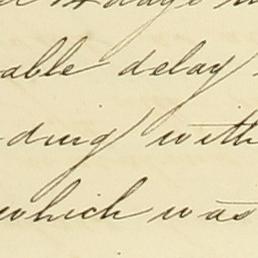 days
able delay
ding with
which was